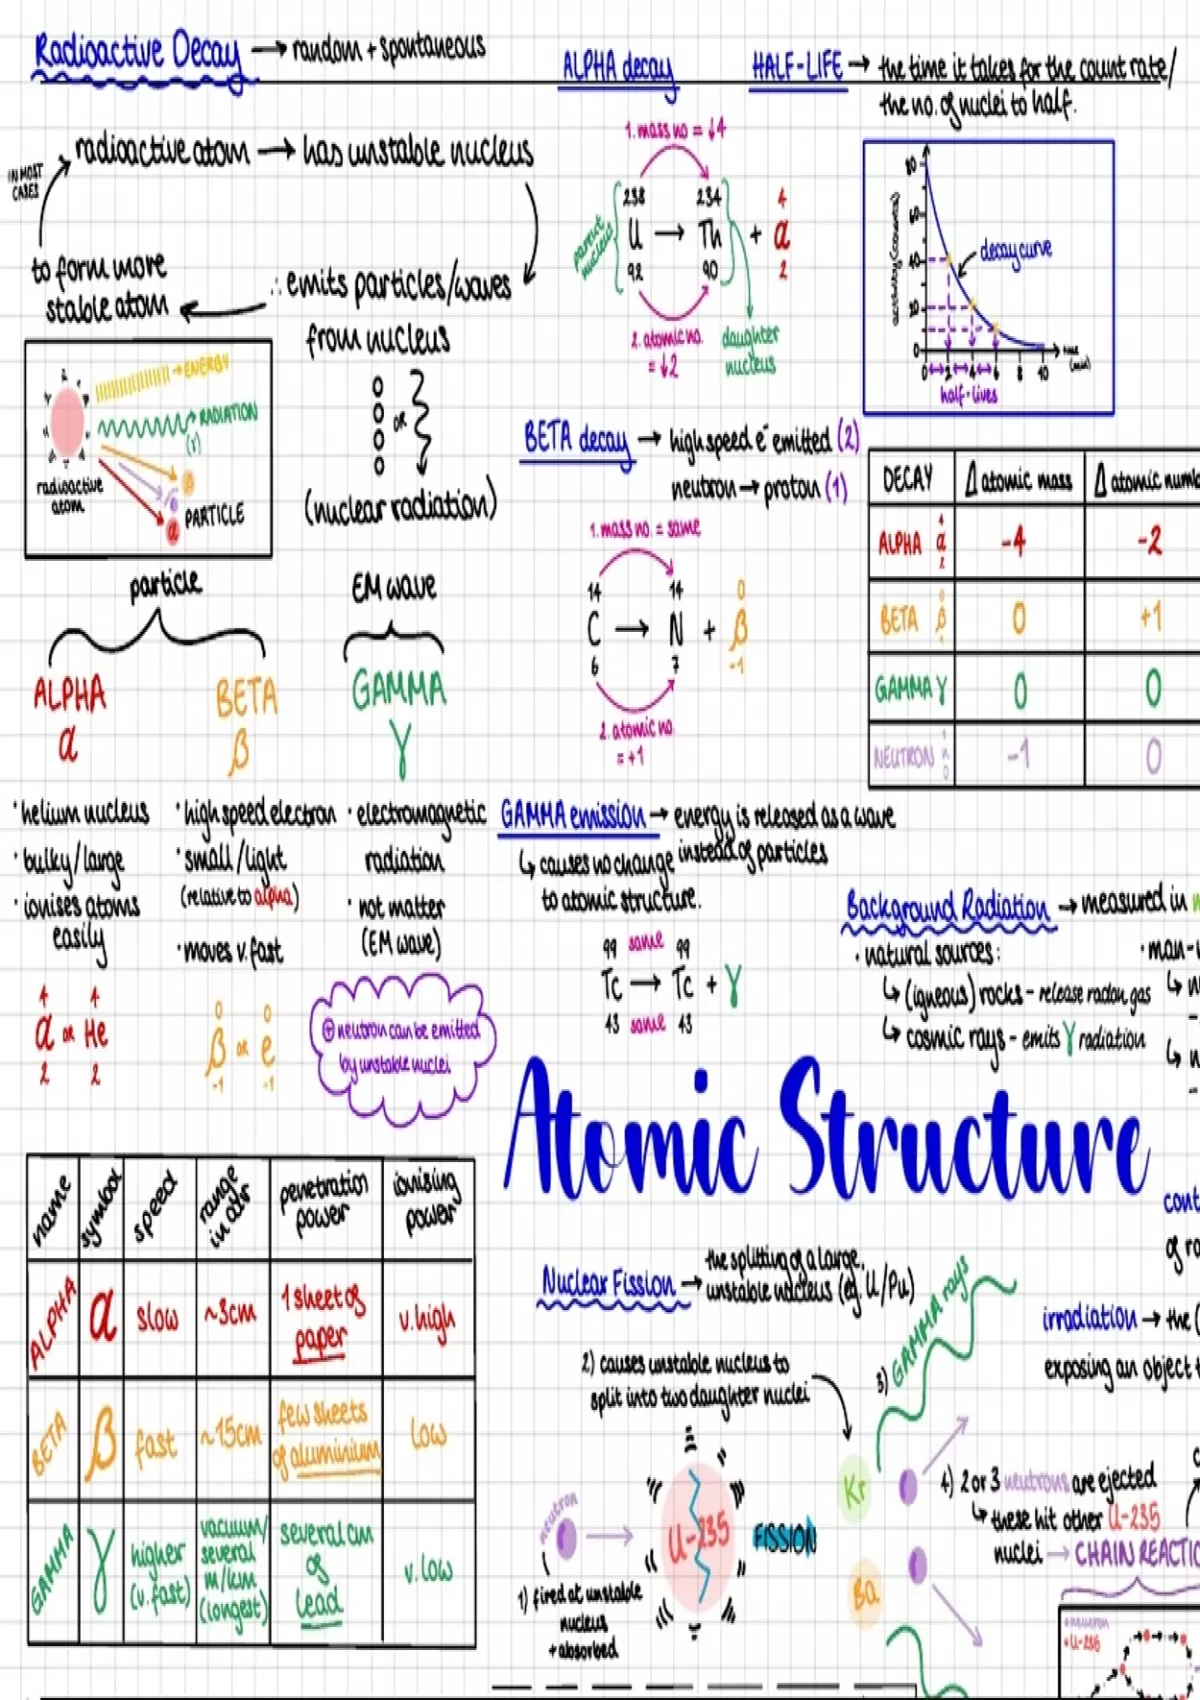 Radioactive Decay → random + spontaneous
IN MOST
CASES
radioactive atom → has unstable nucleus
∴ emits particles/waves
from nucleus
OR
(nuclear radiation)
to form more
stable atom
ENERGY
RADIATION
(γ)
β
α
PARTICLE
radioactive
atom
particle
EM wave
ALPHA
α
BETA
β
GAMMA
γ
· helium nucleus
· bulky/large
· ionises atoms
easily
4
α
2
OR
4
He
2
· high speed electron
· small/light
(relative to alpha)
· moves v. fast
0
β
-1
OR
0
e
-1
· electromagnetic
radiation
· not matter
(EM wave)
⊕ neutron can be emitted
by unstable nuclei
name symbol speed range in air penetration power ionising power
ALPHA α slow ~3cm 1 sheet of paper v. high
BETA β fast ~15cm few sheets of aluminium low
GAMMA γ higher (v. fast) vacuum/ several m/km (longest) several cm of lead v. low
ALPHA decay
1. mass no = ↓4
238 234 4
U → Th + α
92 90 2
parent
nucleus
2. atomic no.
= ↓2
daughter
nucleus
HALF-LIFE → the time it takes for the count rate/
the no. of nuclei to half.
80
60
40
20
0
decay curve
0 2 4 6 8 10
time
(min)
half-lives
BETA decay → high speed e⁻ emitted (2)
neutron → proton (1)
1. mass no. = same
14 14 0
C → N + β
6 7 -1
2. atomic no
= +1
DECAY Δ atomic mass Δ atomic numb
ALPHA 4 α 2 -4 -2
BETA 0 β -1 0 +1
GAMMA γ 0 0
NEUTRON 1 n 0 -1 0
GAMMA emission → energy is released as a wave
instead of particles
↳ causes no change
to atomic structure.
99 same 99
Tc → Tc + γ
43 same 43
Background Radiation → measured in
· natural sources:
↳ (igneous) rocks - release radon gas
↳ cosmic rays - emits γ radiation
· man-
Atomic Structure
cont
of ra
Nuclear Fission → the splitting of a large,
unstable nucleus (eg. U/Pu)
irradiation → the (
exposing an object t
2) causes unstable nucleus to
split into two daughter nuclei
3) GAMMA rays
neutron
U-235
FISSION
Kr
Ba
1) fired at unstable
nucleus
+ absorbed
4) 2 or 3 neutrons are ejected
↳ these hit other U-235
nuclei → CHAIN REACTIO
neutron
U-235